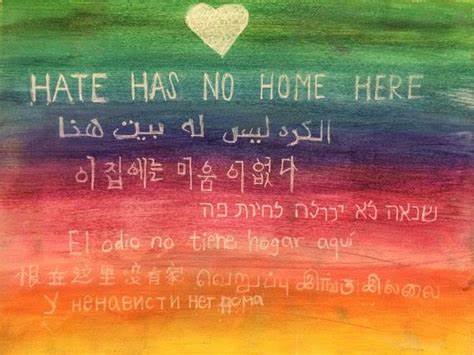 HATE HAS NO HOME HERE
الكره ليس له بيت هنا
이 집에는 미움이 없다
שנאה לא יכולה לחיות פה
El odio no tiene hogar aquí
恨在这里没有家 வெறுப்பு
У ненависти нет дома